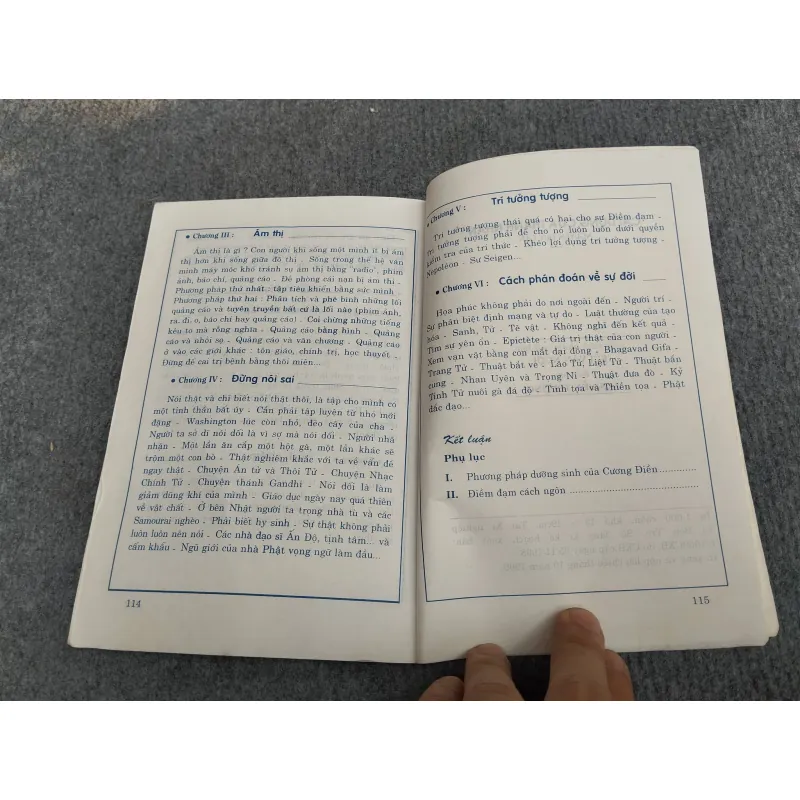 • Chương III : Ám thị
Ám thị là gì ? Con người khi sống một mình ít bị ám
thị hơn khi sống giữa đô thị . Sống trong thế hệ văn
minh máy móc khó tránh sự ám thị bằng "radio", phim
ảnh, báo chí, quảng cáo . Đề phòng cái nạn bị ám thị .
Phương pháp thứ nhất : tập tiêu khiển bằng sức mình .
Phương pháp thứ hai : Phân tích và phê bình những lối
quảng cáo và tuyên truyền bất cứ là lối nào (phim ảnh,
ra. đi. o, báo chí hay quảng cáo) . Coi chừng những tiếng
kêu to mà rỗng nghĩa . Quảng cáo bằng hình . Quảng
cáo và nhồi sọ . Quảng cáo và văn chương . Quảng cáo
ở vào các giới khác : tôn giáo, chính trị, học thuyết .
Đừng để cai trị bệnh bằng thôi miên...
• Chương IV : Đừng nói sai
Nói thật và chỉ biết nói thật thôi, là tập cho mình có
một tinh thần bất úy . Cần phải tập luyện từ nhỏ mới
đặng . Washington lúc còn nhỏ, đẽo cây của cha .
Người ta sở dĩ nói dối là vì sợ mà nói dối . Người nhá
nhận . Một lần ăn cắp một hột gà, một lần khác sẽ
trộm một con bò . Thật nghiêm khắc với ta về vấn đề
ngay thật . Chuyện Án tử và Thôi Tử . Chuyện Nhạc
Chính Tử . Chuyện thánh Gandhi . Nói dối là làm
giảm dũng khí của mình . Giáo dục ngày nay quá thiên
về vật chất . Ở bên Nhật người ta trọng nhà tu và các
Samourai nghèo . Phải biết hy sinh . Sự thật không phải
luôn luôn nên nói . Các nhà đạo sĩ Ấn Độ, tịnh tâm... và
cấm khẩu . Ngũ giới của nhà Phật vọng ngữ làm đầu...
114
• Chương V : Trí tưởng tượng
Trí tưởng tượng thái quá có hại cho sự Điềm đạm .
Trí tưởng tượng phải để cho nó luôn luôn dưới quyền
kiểm tra của tri thức . Khéo lợi dụng trí tưởng tượng .
Napoléon . Sư Seigen...
• Chương VI : Cách phán đoán về sự đời
Họa phúc không phải do nơi ngoài đến . Người trí .
Sự phân biệt định mạng và tự do . Luật thường của tạo
hóa . Sanh, Tử . Tê vật . Không nghĩ đến kết quả .
Tìm sự yên ổn . Epictète : Giá trị thật của con người .
Xem vạn vật bằng con mắt đại đồng . Bhagavad Gita .
Trang Tử . Thuật bất vê . Lão Tử, Liệt Tử . Thuật bần
cùng . Nhan Uyên và Trọng Ni . Thuật đưa đò . Kỷ
Tinh Tử nuôi gà đá độ . Tinh tọa và Thiền tọa . Phật
đắc đạo...
Kết luận
Phụ lục
I. Phương pháp dưỡng sinh của Cương Điền.............
II. Điềm đạm cách ngôn ......................................
115